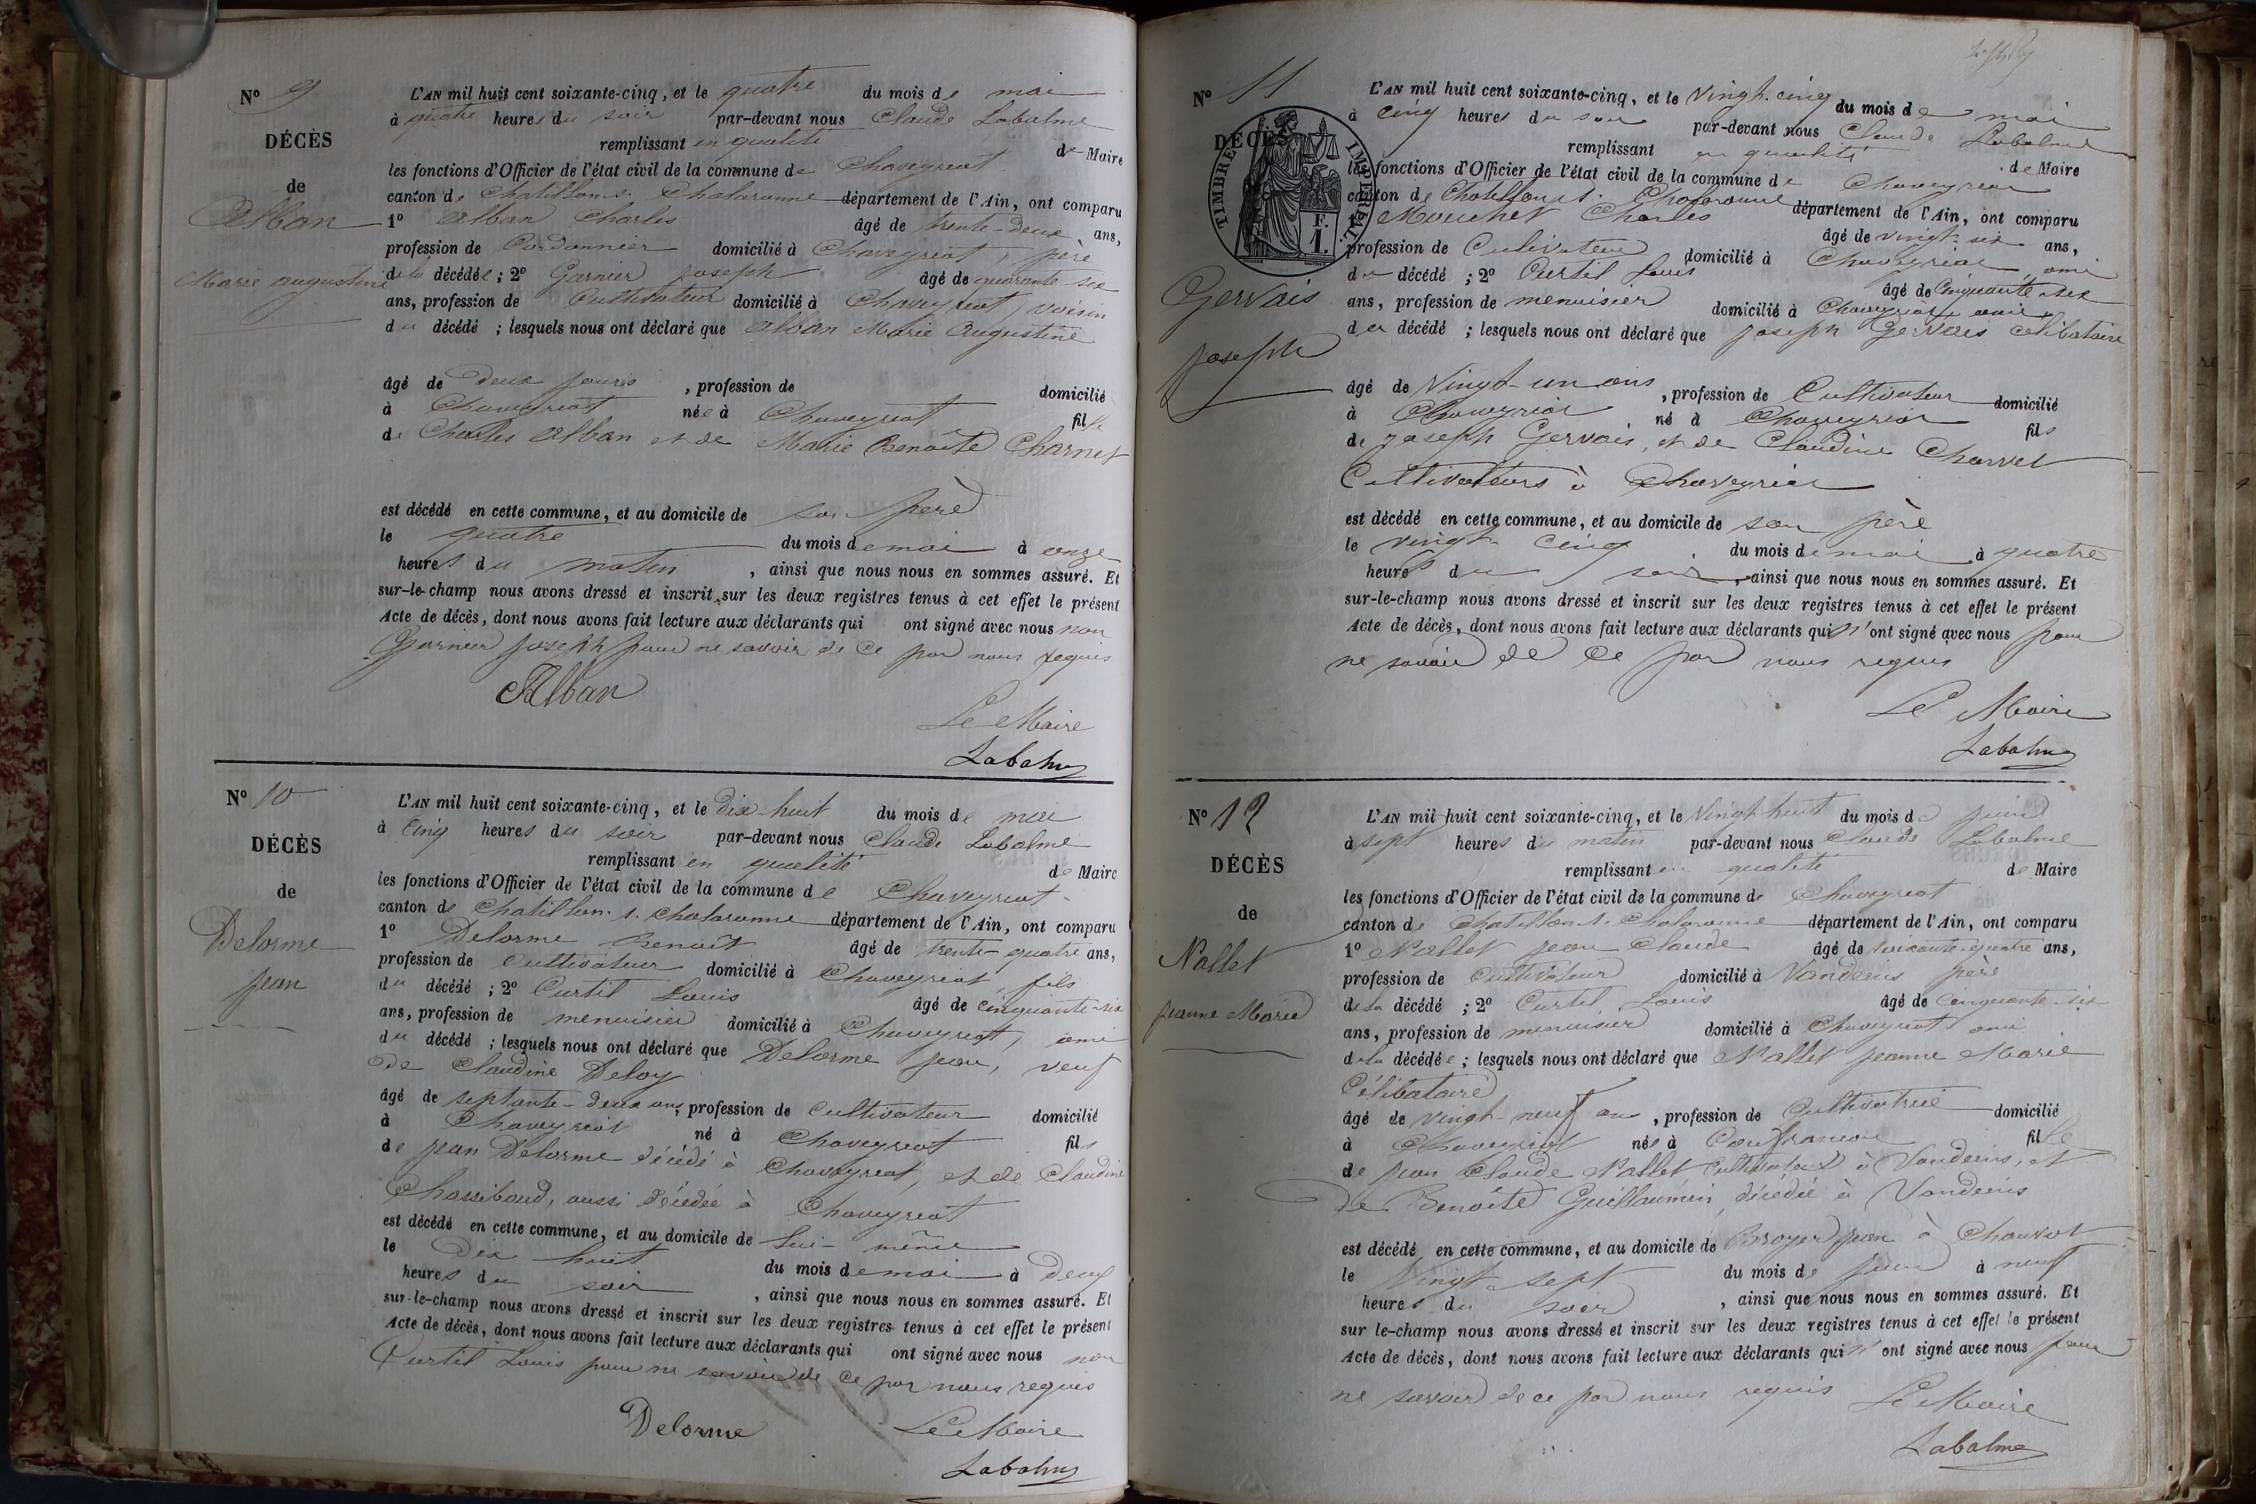 N° 9
DÉCÈS
de
Alban
Marie augustine
L'AN mil huit cent soixante-cinq, et le quatre du mois de mai
à quatre heures du soir par-devant nous Claude Labalme
remplissant en qualité de Maire
les fonctions d'Officier de l'état civil de la commune de Chaveyriat
canton de Chatillon s. Chalaronne département de l'Ain, ont comparu
1° Alban Charles âgé de trente-deux ans,
profession de Cordonnier domicilié à Chaveyriat, père
de la décédée ; 2° Garnier Joseph âgé de quarante six
ans, profession de Cultivateur domicilié à Chaveyriat, voisin
du décédé ; lesquels nous ont déclaré que Alban Marie Augustine
âgé de deux jours , profession de domicilié
à Chaveyriat née à Chaveyriat fille
de Charles Alban et de Marie Benoite Charnet
est décédé en cette commune, et au domicile de son père
le quatre du mois de mai à onze
heures du matin , ainsi que nous nous en sommes assuré. Et
sur-le-champ nous avons dressé et inscrit sur les deux registres tenus à cet effet le présent
Acte de décès, dont nous avons fait lecture aux déclarants qui ont signé avec nous non
Garnier Joseph pour ne savoir de ce par nous requis
Alban
Le Maire
Labalme
N° 10
DÉCÈS
de
Delorme
jean
L'AN mil huit cent soixante-cinq, et le dix-huit du mois de mai
à cinq heures du soir par-devant nous Claude Labalme
remplissant en qualité de Maire
les fonctions d'Officier de l'état civil de la commune de Chaveyriat
canton de Chatillon s. Chalaronne département de l'Ain, ont comparu
1° Delorme Benoît âgé de trente-quatre ans,
profession de Cultivateur domicilié à Chaveyriat, fils
du décédé ; 2° Curtil Louis âgé de cinquante-six
ans, profession de menuisier domicilié à Chaveyriat, ami
du décédé ; lesquels nous ont déclaré que Delorme jean, veuf
de Claudine Deloy
âgé de septante-deux ans, profession de Cultivateur domicilié
à Chaveyriat né à Chaveyriat fils
de jean Delorme décédé à Chaveyriat, et de Claudine
aussi décédée à Chaveyriat
est décédé en cette commune, et au domicile de lui-même
le dix huit du mois de mai à deux
heures du soir , ainsi que nous nous en sommes assuré. Et
sur-le-champ nous avons dressé et inscrit sur les deux registres tenus à cet effet le présent
Acte de décès, dont nous avons fait lecture aux déclarants qui ont signé avec nous non
Curtil Louis pour ne savoir de ce par nous requis
Delorme
Le Maire
Labalme
N° 11
DÉCÈS
TIMBRE IMPÉRIAL
F.
1.
Gervais
joseph
L'AN mil huit cent soixante-cinq, et le vingt-cinq du mois de mai
à cinq heures du soir par-devant nous Claude Labalme
remplissant en qualité de Maire
les fonctions d'Officier de l'état civil de la commune de Chaveyriat
canton de Chatillon s. Chalaronne département de l'Ain, ont comparu
Mouchet Charles âgé de vingt-six ans,
profession de Cultivateur domicilié à Chaveyriat ami
du décédé ; 2° Curtil Louis âgé de cinquante-six
ans, profession de menuisier domicilié à Chaveyriat ami
du décédé ; lesquels nous ont déclaré que joseph Gervais célibataire
âgé de vingt-un ans , profession de Cultivateur domicilié
à Chaveyriat né à Chaveyriat fils
de joseph Gervais, et de Claudine Charvet
Cultivateurs à Chaveyriat
est décédé en cette commune, et au domicile de son père
le vingt cinq du mois de mai à quatre
heures du soir , ainsi que nous nous en sommes assuré. Et
sur-le-champ nous avons dressé et inscrit sur les deux registres tenus à cet effet le présent
Acte de décès, dont nous avons fait lecture aux déclarants qui n'ont signé avec nous pour
ne savoir de ce par nous requis
Le Maire
Labalme
N° 12
DÉCÈS
de
Nallet
jeanne Marie
L'AN mil huit cent soixante-cinq, et le vingt huit du mois de juin
à sept heures du matin par-devant nous Claude Labalme
remplissant en qualité de Maire
les fonctions d'Officier de l'état civil de la commune de Chaveyriat
canton de Chatillon s. Chalaronne département de l'Ain, ont comparu
1° Nallet jean Claude âgé de soixante-quatre ans,
profession de Cultivateur domicilié à Vandeins père
de la décédé ; 2° Curtil Louis âgé de cinquante-six
ans, profession de menuisier domicilié à Chaveyriat ami
de la décédée ; lesquels nous ont déclaré que Nallet jeanne Marie
Célibataire
âgé de vingt-neuf ans , profession de Cultivatrice domicilié
à Chaveyriat née à Confrançon fille
de jean Claude Nallet Cultivateur à Vandeins, et
de Benoîte Guillaumin, décédée à Vandeins
est décédé en cette commune, et au domicile de Broyer jean à
le vingt-sept du mois de juin à neuf
heures du soir , ainsi que nous nous en sommes assuré. Et
sur le-champ nous avons dressé et inscrit sur les deux registres tenus à cet effet le présent
Acte de décès, dont nous avons fait lecture aux déclarants qui n'ont signé avec nous pour
ne savoir de ce par nous requis
Le Maire
Labalme